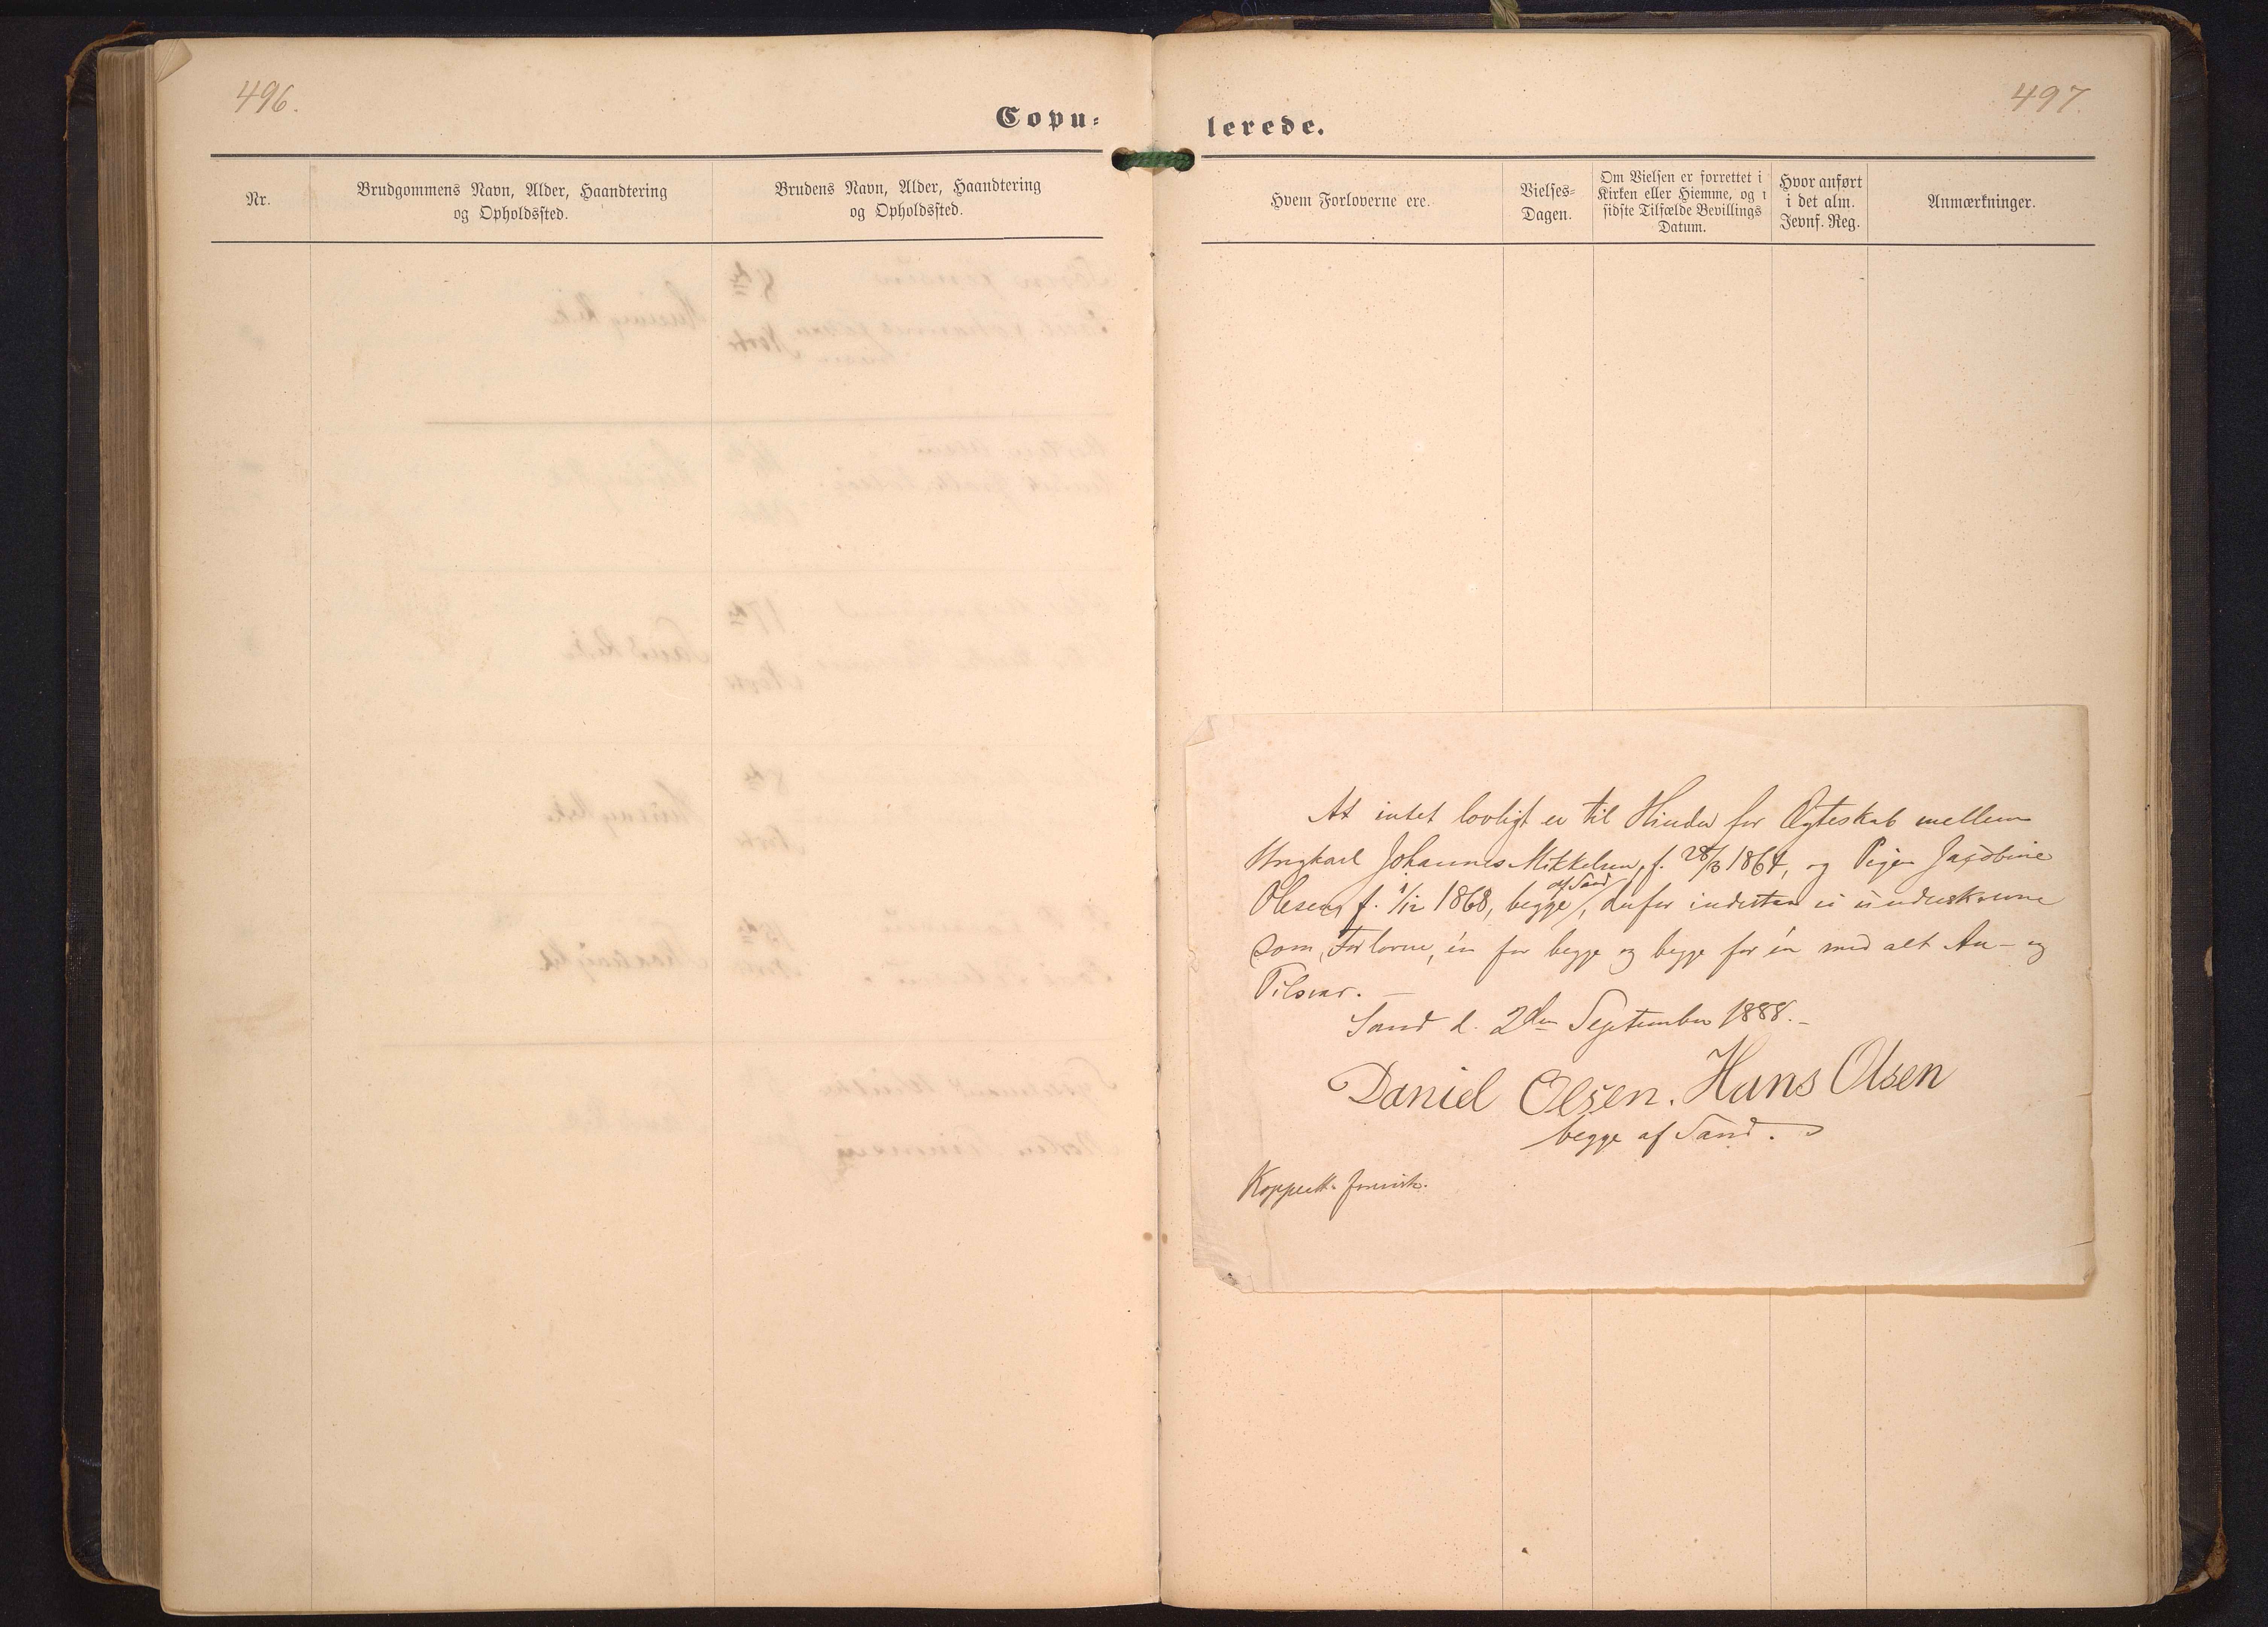 496.
Copu-
Nr.
Brudgommens Navn, Alder, Haandtering
og Opholdssted.
Brudens Navn, Alder, Haandtering
og Opholdssted.
497.
lerede.
Hvem Forloverne ere.
Vielses-
Dagen.
Om Vielsen er forrettet i
Kirken eller Hiemme, og i
sidste Tilfælde Bevillings
Datum.
Hvor anført
i det alm.
Jevnf. Reg.
Anmærkninger.
At intet lovligt er til Hinder for Ægteskab mellem
Ungkarl Johannes Mikkelsen, f. 28/3 1864, og Pigen Jacobine
af Sand
Olsen, f. 1/12 1868, begge /, derfor indestaa vi underskrevne
som Forlovere, én for begge og begge for én med alt An- og
Tilsvar. —
Sand d. 2den September 1888. –
Daniel Olsen. Hans Olsen
begge af Sand.